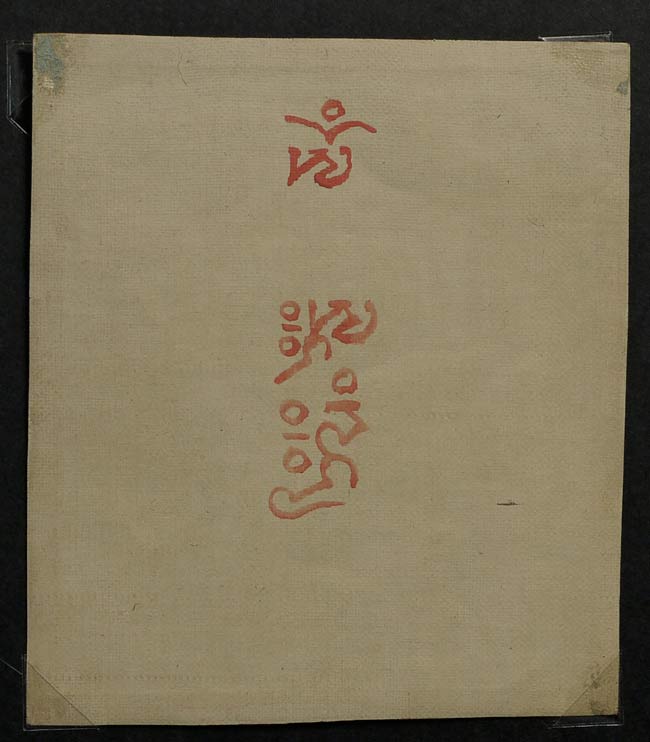 ཨོཾ
ཨཱ༔
ཧཱུྃ༔